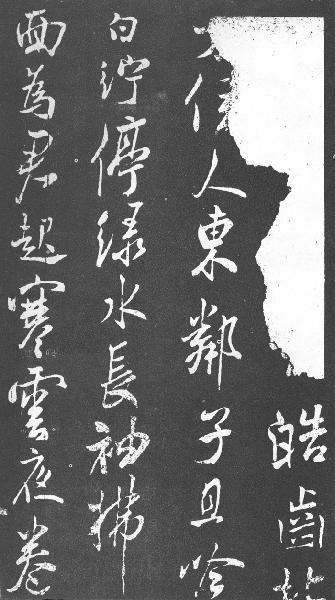 皓齒
佳人東鄰子且吟
白紵停綠水長袖拂
面為君起寒雲夜卷